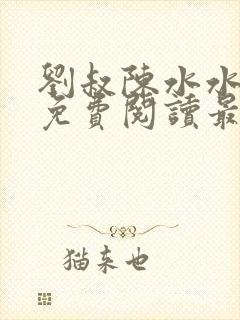 劉叔陳水水
免費閱讀最
猫来也